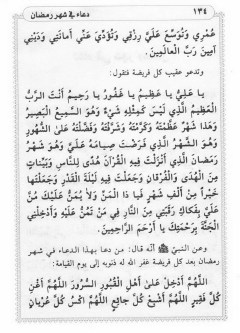 ١٣٤ دعاء في شهر رمضان
عُمُري وَتُوَسِّعَ عَلَيَّ رِزْقي وَتُؤَدِّيَ عَنّي أمانَتي وَدَيْني
آمينَ رَبَّ الْعالَمينَ.
وتدعو عقيب كل فريضة فتقول:
يا عَلِيُّ يا عَظيمُ يا غَفُورُ يا رَحيمُ أنْتَ الرَّبُّ
الْعَظيمُ الَّذي لَيْسَ كَمِثْلِهِ شَيْءٌ وَهُوَ السَّميعُ الْبَصيرُ
وَهذا شَهْرٌ عَظَّمْتَهُ وَكَرَّمْتَهُ وَشَرَّفْتَهُ وَفَضَّلْتَهُ عَلَى الشُّهُورِ
وَهُوَ الشَّهْرُ الَّذي فَرَضْتَ صِيامَهُ عَلَيَّ وَهُوَ شَهْرُ
رَمَضانَ الَّذي أنْزَلْتَ فيهِ الْقُرْآنَ هُدًى لِلنّاسِ وَبَيِّناتٍ
مِنَ الْهُدى وَالْفُرْقانِ وَجَعَلْتَ فيهِ لَيْلَةَ الْقَدْرِ وَجَعَلْتَها
خَيْراً مِنْ ألْفِ شَهْرٍ فَيا ذَا الْمَنِّ وَلا يُمَنُّ عَلَيْكَ مُنَّ
عَلَيَّ بِفَكاكِ رَقَبَتي مِنَ النّارِ في مَنْ تَمُنُّ عَلَيْهِ وَأدْخِلْنِي
الْجَنَّةَ بِرَحْمَتِكَ يا أرْحَمَ الرّاحِمينَ.
وعن النبيّ ﷺ أنّه قال: من دعا بهذا الدعاء في شهر
رمضان بعد كل فريضة غفر الله له ذنوبه إلى يوم القيامة:
اللَّهُمَّ أدْخِلْ عَلى أهْلِ الْقُبُورِ السُّرُورَ اللَّهُمَّ أغْنِ
كُلَّ فَقيرٍ اللَّهُمَّ أشْبِعْ كُلَّ جائِعٍ اللَّهُمَّ اكْسُ كُلَّ عُرْيانٍ